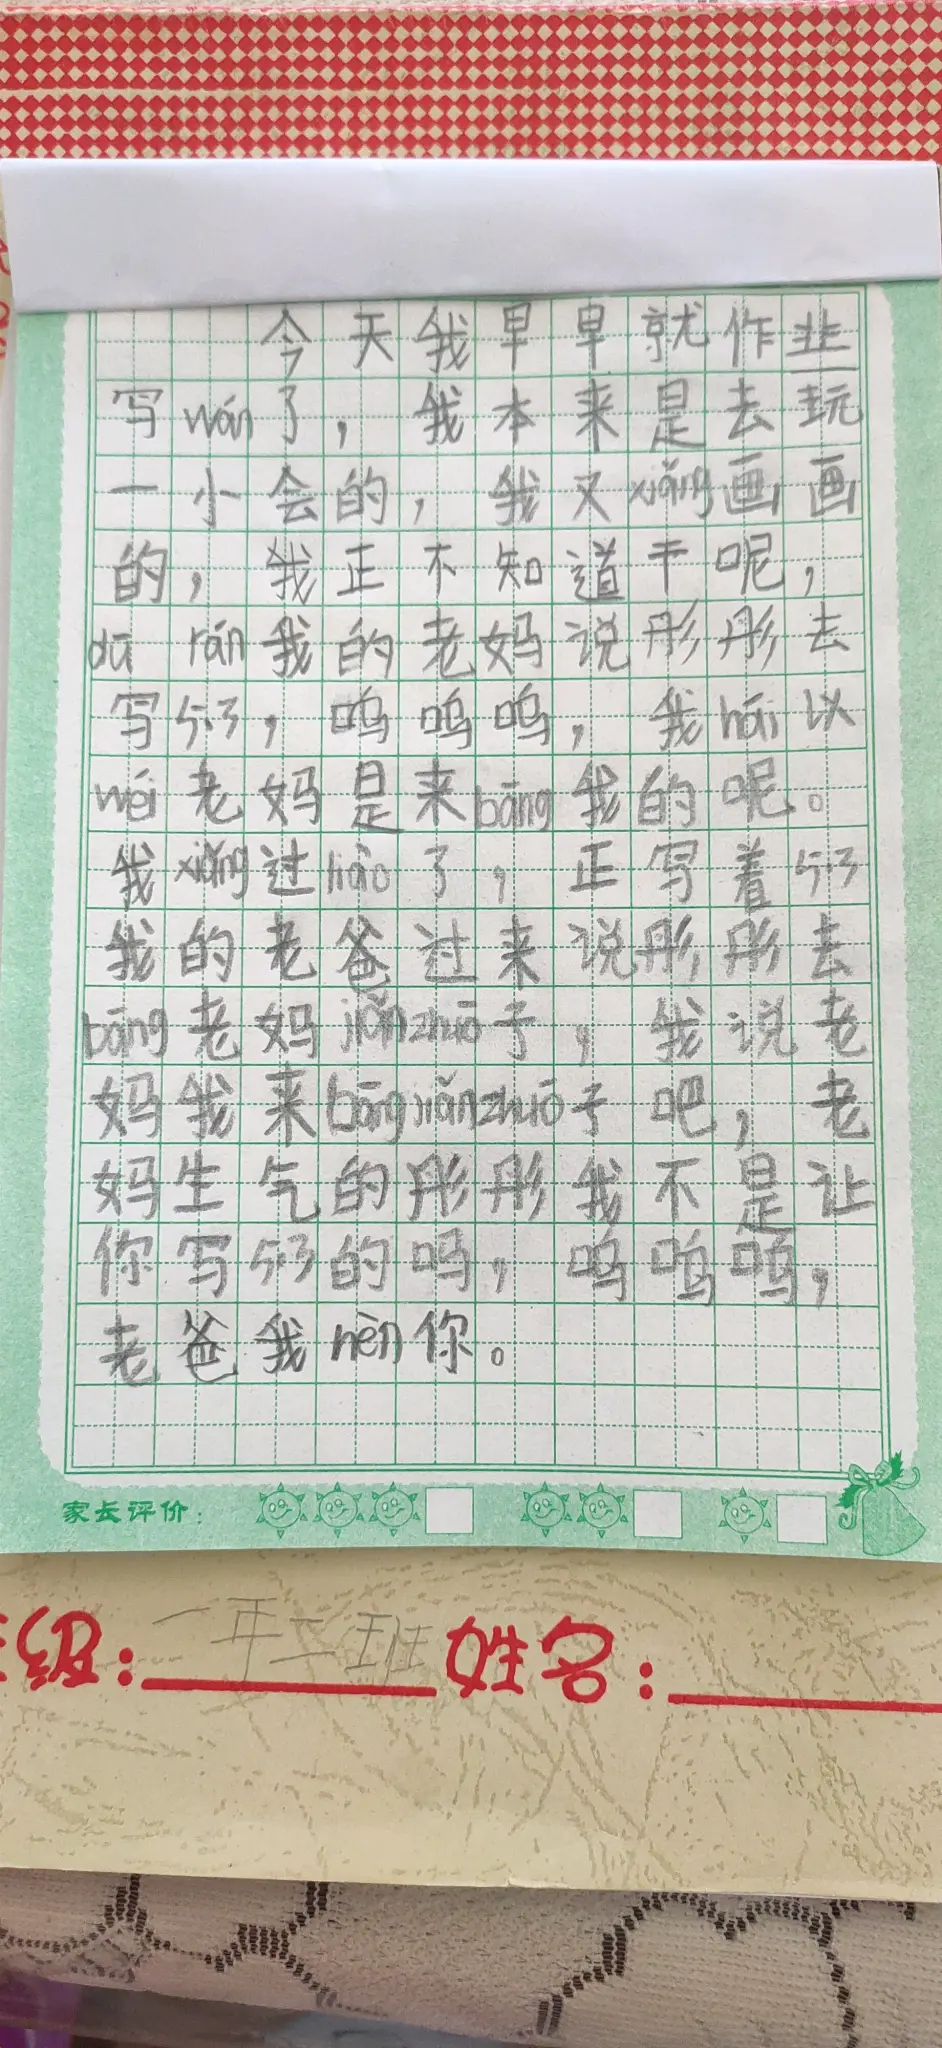 今天我早早就作业
写wán了，我本来是去玩
一小会的，我又xiǎng画画
的，我正不知道干呢，
dū rán我的老妈说彤彤去
写5.3，呜呜呜，我hái以
wéi老妈是来bāng我的呢。
我xiǎng过hǎo了，正写着5.3
我的老爸过来说彤彤去
bāng老妈jiǎnzhuō子，我说老
妈我来bāngjiǎnzhuō子吧，老
妈生气的彤彤我不是让
你写5.3的吗，呜呜呜，
老爸我hèn你。
家长评价：
班级：一年二班 姓名：